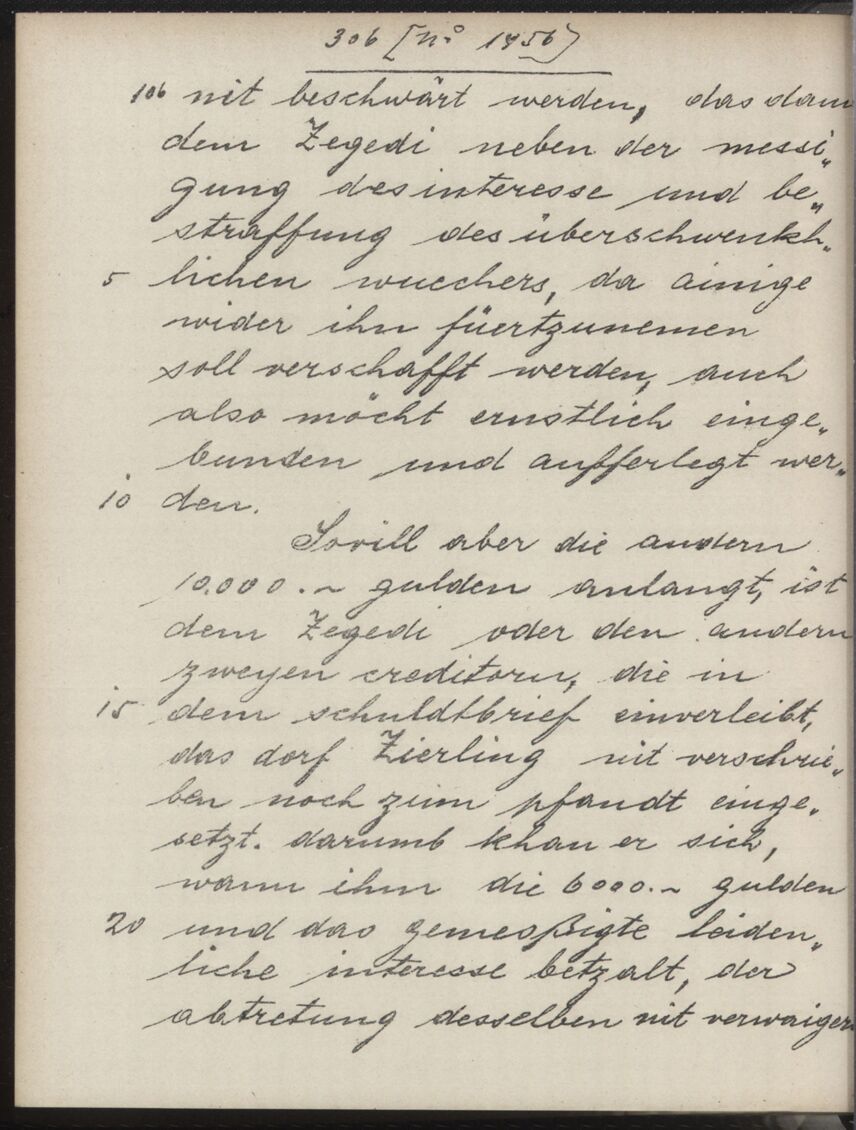 306 [No 1456]
106 nit beschwärt werden, das dann
dem Zegedi neben der messi„
gung des interesse und be„
straffung des überschwenkh„
5 lichen wucchers, da ainige
wider ihn füertzunemen
soll verschafft werden, auch
also möcht ernstlich einge„
bunden und aufferlegt wer„
10 den.
Sovill aber die andern
10.000.~ gulden anlangt, ist
dem Zegedi oder den andern
zweyen creditorn, die in
15 dem schuldtbrief einverleibt,
das dorf Zierling nit verschrie„
ben noch zum pfandt einge„
setzt. darumb khan er sich,
wann ihm die 6000.~ gulden
20 und das gemeßigte leiden„
liche interesse betzalt, der
abtretung desselben nit verwaigern